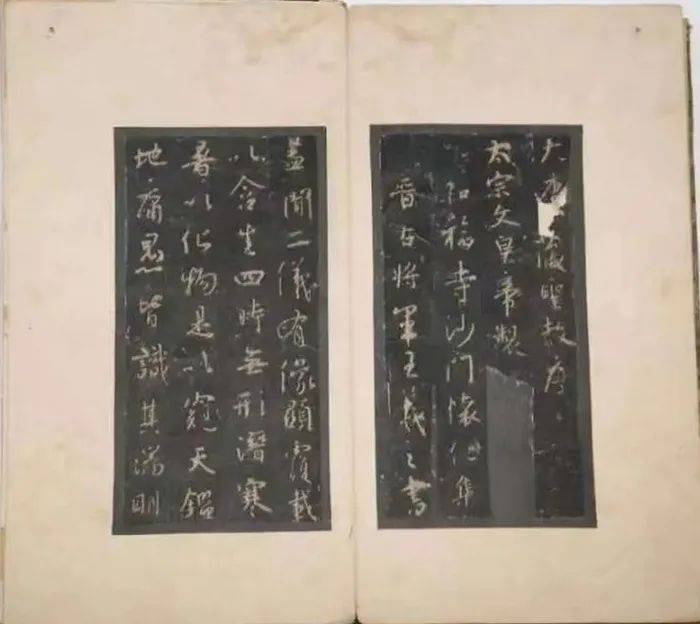 大唐藏聖教序
太宗文皇帝製
弘福寺沙門懷仁集
晉右將軍王羲之書
蓋聞二儀有像顯覆載
以含生四時無形潛寒
暑以化物是以窺天鑑
地庸愚皆識其端明